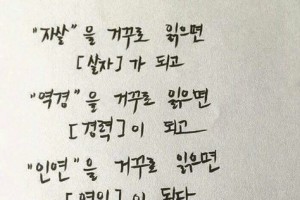 "자살"을 거꾸로 읽으면
[살자]가 되고
"역경"을 거꾸로 읽으면
[경력]이 되고
"인연"을 거꾸로 읽으면
[연인]이 된다